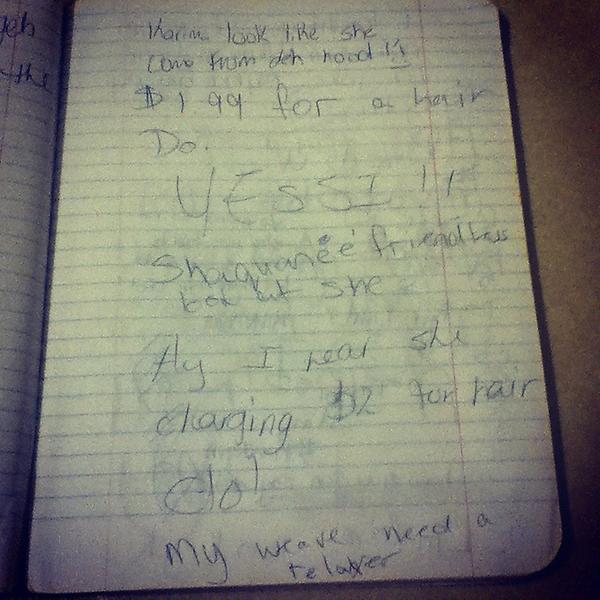 geh
the
Karina look like she
came from deh hood !!
$1 99 for a hair
Do.
YESSI !!
Shaquaneé friendless
look at she
Ay I hear she
charging $2 for hair
do!
My weave need a
relaxer